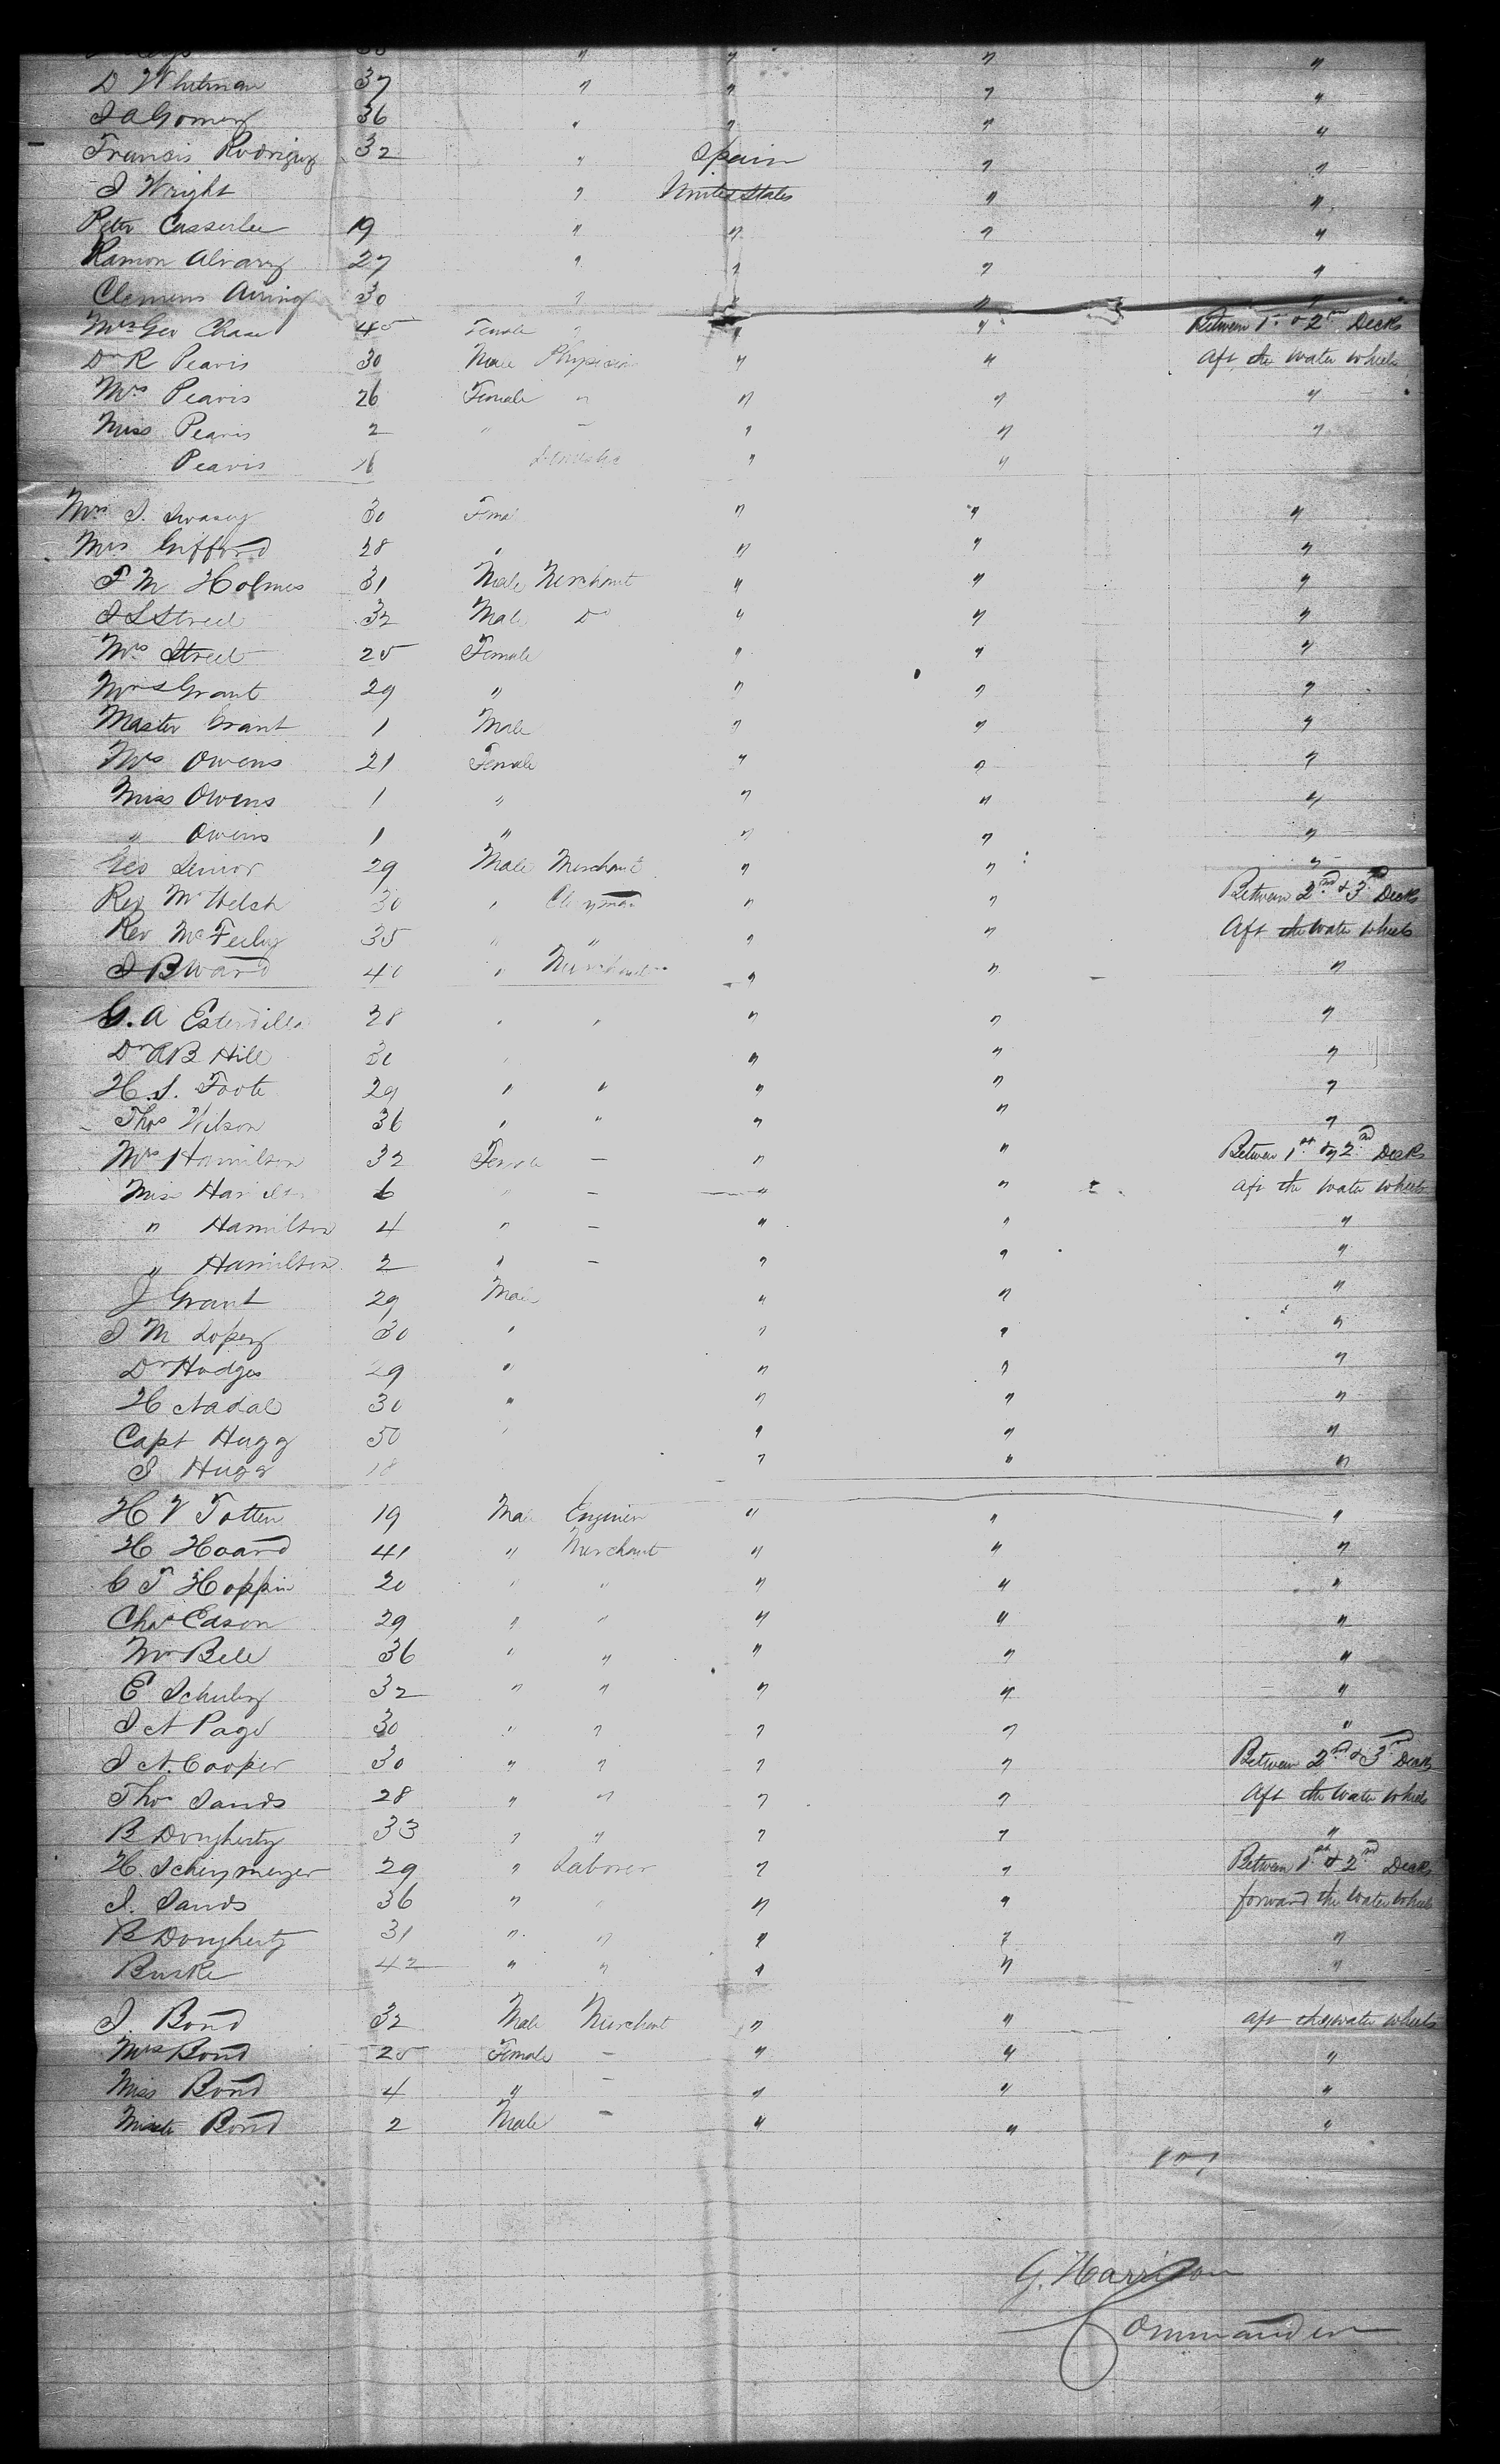 D Whitman 37 " " " "
J A Gomez 36 " " " "
Francis Rodriguez 32 " Spain " "
J Wright " United States " "
Peter Casserlee 19 " " " "
Ramon Alvarez 27 " " " "
Clemens 30 " " " "
Mrs Geo Chase 45 Female " " " Between 1st & 2nd Decks
Dr R Peavis 30 Male Physician " " Aft the Water Wheels
Mrs Peavis 26 Female " " " "
Miss Peavis 2 " – " " "
Peavis " "
Mrs S. Swasey 30 Fema " " "
Mrs Gifford 28 " " " "
T M Holmes 31 Male Merchant " " "
J L Street 32 Male Do " " "
Mrs Street 25 Female " " "
Mrs Grant 29 " " " "
Master Grant 1 Male " " "
Mrs Owens 21 Female " " "
Miss Owens 1 " " " "
" Owens 1 " " " "
Geo Senior 29 Male Merchant " " "
Rev Mr Welsh 30 " Clergyman " " Between 2nd & 3rd Decks
Rev McFeely 35 " " " " Aft the Water Wheels
J B Ward 40 " Merchant " " "
G. A Estudillo 28 " " " " "
Dr R B Hill 30 " " " "
H. S. Foote 29 " " " " "
Thos Wilson 36 " " " " "
Mrs Hamilton 32 Female – " " Between 1st & 2nd Decks
Miss Hamilton 6 " – " " aft the Water Wheels
" Hamilton 4 " – " " "
" Hamilton 2 " – " " "
J Grant 29 Male " " "
J M Lopez 30 " " " "
Dr Hodges 29 " " " "
H Nadal 30 " " " "
Capt Hugg 50 " " " "
J Hugg 18 " " "
H V Totten 19 Male Engineer " " "
H Hoard 41 " Merchant " " "
C T Hoppin 20 " " " " "
Chas Eason 29 " " " " "
Mr Bell 36 " " " " "
E Schulz 32 " " " " "
J N Page 30 " " " " "
J N. Cooper 30 " " " " Between 2nd & 3rd Decks
Thos Sands 28 " " " " Aft the Water Wheels
B Dougherty 33 " " " " "
H. 29 " Laborer " " Between 1st & 2nd Decks
J. Sands 36 " " " " forward the Water Wheels
B Dougherty 31 " " " " "
Burke 42 " " " " "
J. Bond 32 Male Merchant " " aft the water wheels
Mrs Bond 25 Female – " " "
Miss Bond 4 " – " " "
Master Bond 2 Male – " " "
G. Harrison
Commander